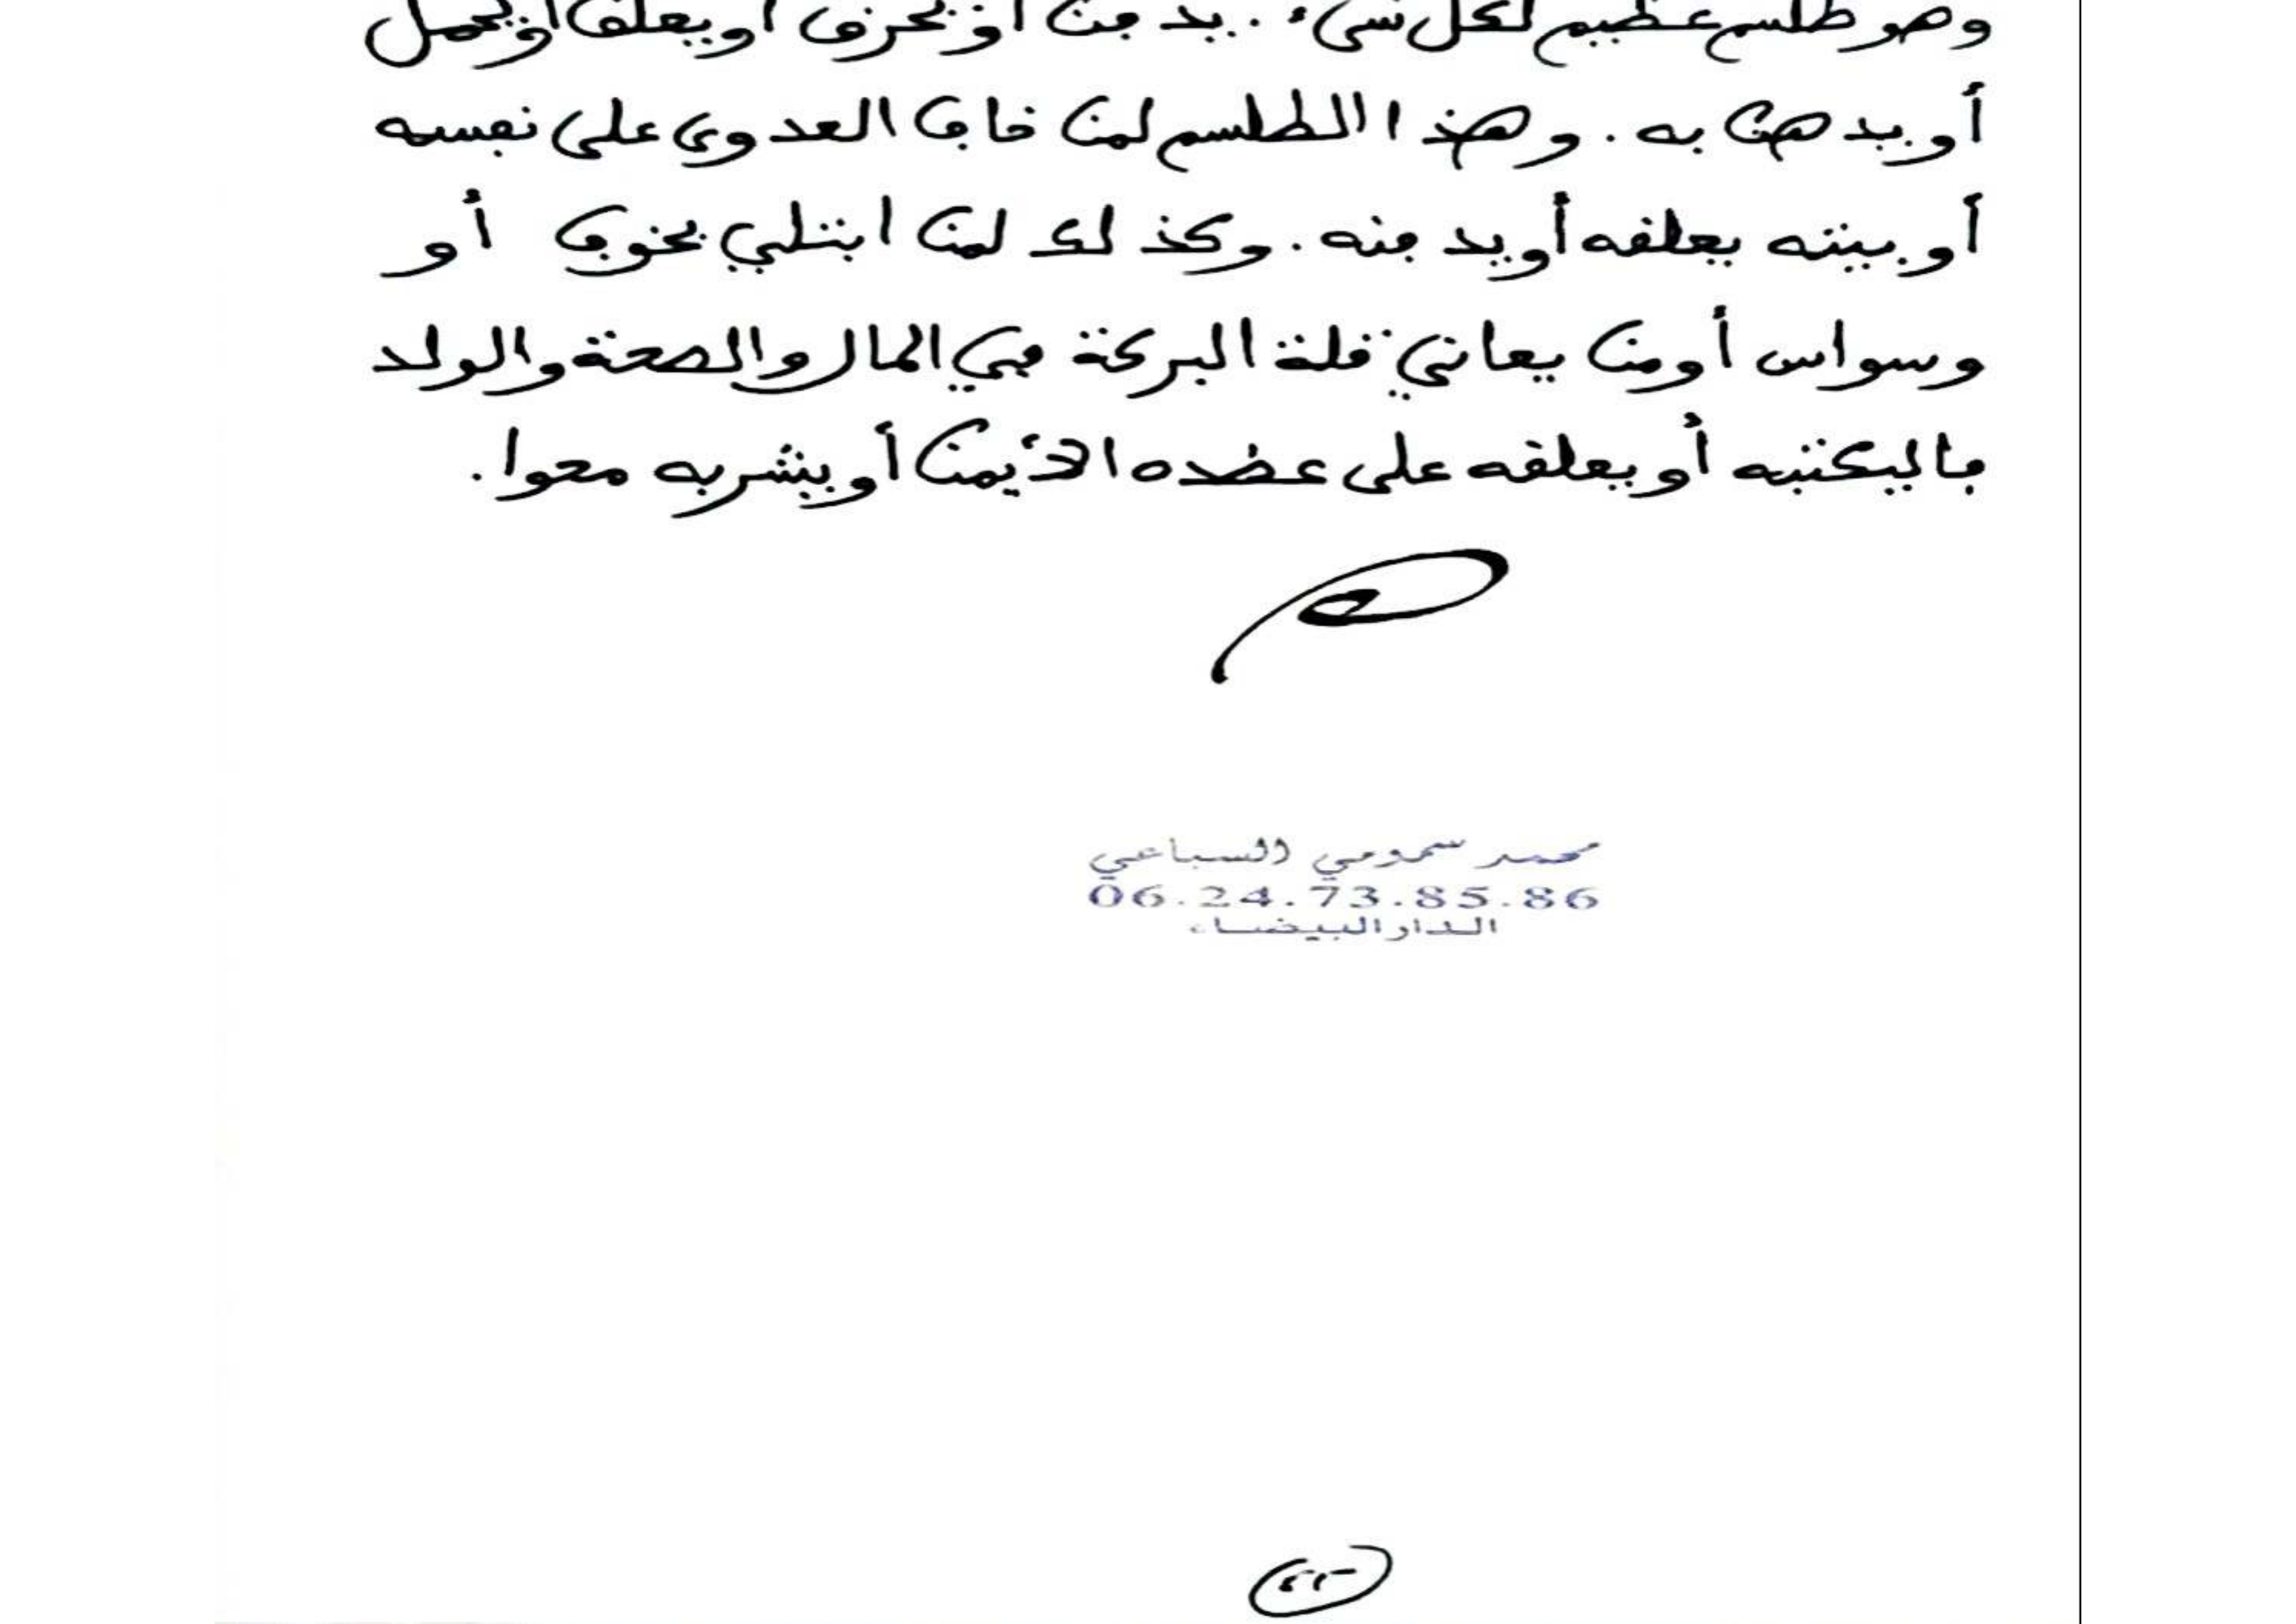 وهو طلسم عظيم لكل شيء. يدفن أو يحرق أو يعلق أو يحمل
أو يدهن به. وهذا الطلسم لمن خاف العدوى على نفسه
أو بيته يعلقه أو يدفنه. وكذلك لمن ابتلي بخوف أو
وسواس أو من يعاني قلة البركة في المال والصحة والولد
فاليكتبه أو يعلقه على عضده الأيمن أو يشربه محوا.
محمد سمومي السباعي
06.24.73.85.86
الدار البيضاء